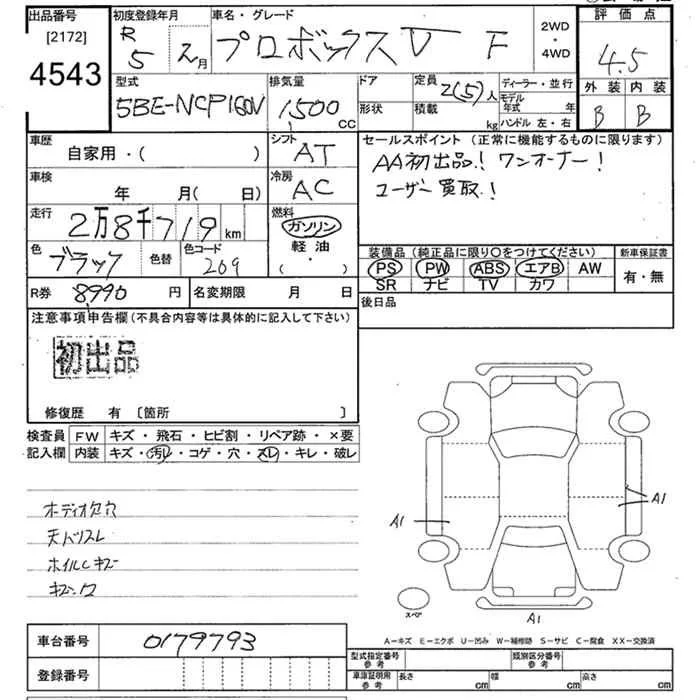 出品番号
[2172]
4543
初度登録年月
R 5 2月
車名・グレード
プロボックスV F
2WD
・
4WD
評価点
4.5
外装 内装
B B
型式
5BE-NCP160V
排気量
1,500 CC
ドア
形状
定員 2(5)人
積載 kg
ディーラー・並行
モデル年式 年
ハンドル 左・右
車歴
自家用・( )
シフト
AT
車検
年 月(日)
冷房
AC
走行
2万8千719km
燃料
ガソリン
軽油
( ・ )
色
ブラック
色替
色コード
209
R券 8,990円
名変期限 月 日
セールスポイント(正常に機能するものに限ります)
AA初出品!ワンオーナー!
ユーザー買取!
装備品(純正品に限り○をつけてください)
PS PW ABS エアB AW
SR ナビ TV カワ
新車保証書
有・無
後日品
注意事項申告欄(不具合内容等は具体的に記入して下さい)
初出品
修復歴 有 [箇所 ]
検査員
記入欄
FW キズ・飛石・ヒビ割・リペア跡・×要
内装 キズ・汚レ・コゲ・穴・スレ・キレ・破レ
天ドリスレ
ホイルCキズ
A1
A1
A1
スペア
A-キズ E-エクボ U-凹み W-補修跡 S-サビ C-腐食 XX-交換済
車台番号 0179793
登録番号
型式指定番号
参考
類別区分番号
参考
車庫証明用
参考
長さ cm
幅 cm
高さ cm